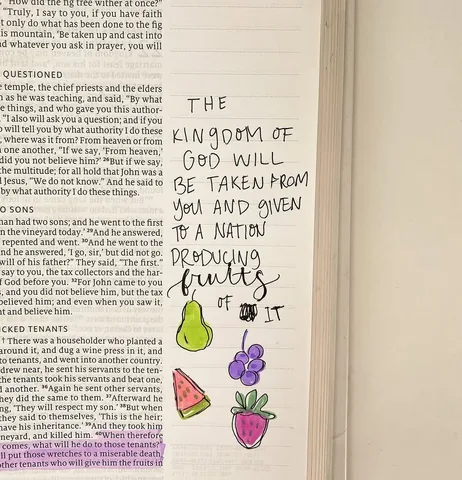 "How did the fig tree wither at once?"
"Truly, I say to you, if you have faith
t only do what has been done to the fig
is mountain, 'Be taken up and cast into
d whatever you ask in prayer, you will
QUESTIONED
e temple, the chief priests and the elders
n as he was teaching, and said, "By what
e things, and who gave you this author-
"I also will ask you a question; and if you
o will tell you by what authority I do these
, where was it from? From heaven or from
n one another, "If we say, 'From heaven,'
did you not believe him?' 26But if we say,
the multitude; for all hold that John was a
d Jesus, "We do not know." And he said to
by what authority I do these things.
O SONS
man had two sons; and he went to the first
n the vineyard today.' 29And he answered,
repented and went. 30And he went to the
nd he answered, 'I go, sir,' but did not go.
will of his father?" They said, "The first."
say to you, the tax collectors and the har-
f God before you. 32For John came to you
s, and you did not believe him, but the tax
believed him; and even when you saw it,
nt and believe him.
ICKED TENANTS
There was a householder who planted a
around it, and dug a wine press in it, and
to tenants, and went into another country.
drew near, he sent his servants to the ten-
the tenants took his servants and beat one,
d another. 36Again he sent other servants,
hey did the same to them. 37Afterward he
ng, 'They will respect my son.' 38But when
they said to themselves, 'This is the heir;
ave his inheritance.' 39And they took him
neyard, and killed him. 40When therefore
comes, what will he do to those tenants?"
ll put those wretches to a miserable death,
other tenants who will give him the fruits in
THE
KINGDOM OF
GOD WILL
BE TAKEN FROM
YOU AND GIVEN
TO A NATION
PRODUCING
fruits
OF IT